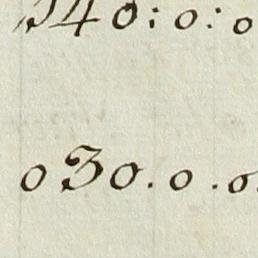 540:0:0
030.0.0.